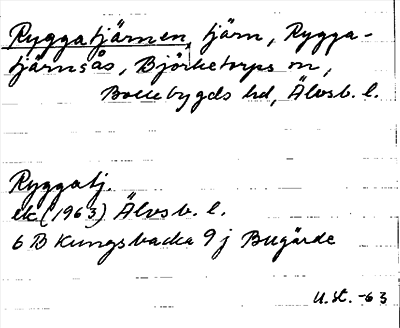 Ryggatjärnen, tjärn, Rygga-
tjärnsås, Björketorps sn,
Bollebygds hd, Älvsb. l.
Ryggatj.
ek (1963) Älvsb. l.
6 B Kungsbacka 9 j Bugärde
U.St. -63